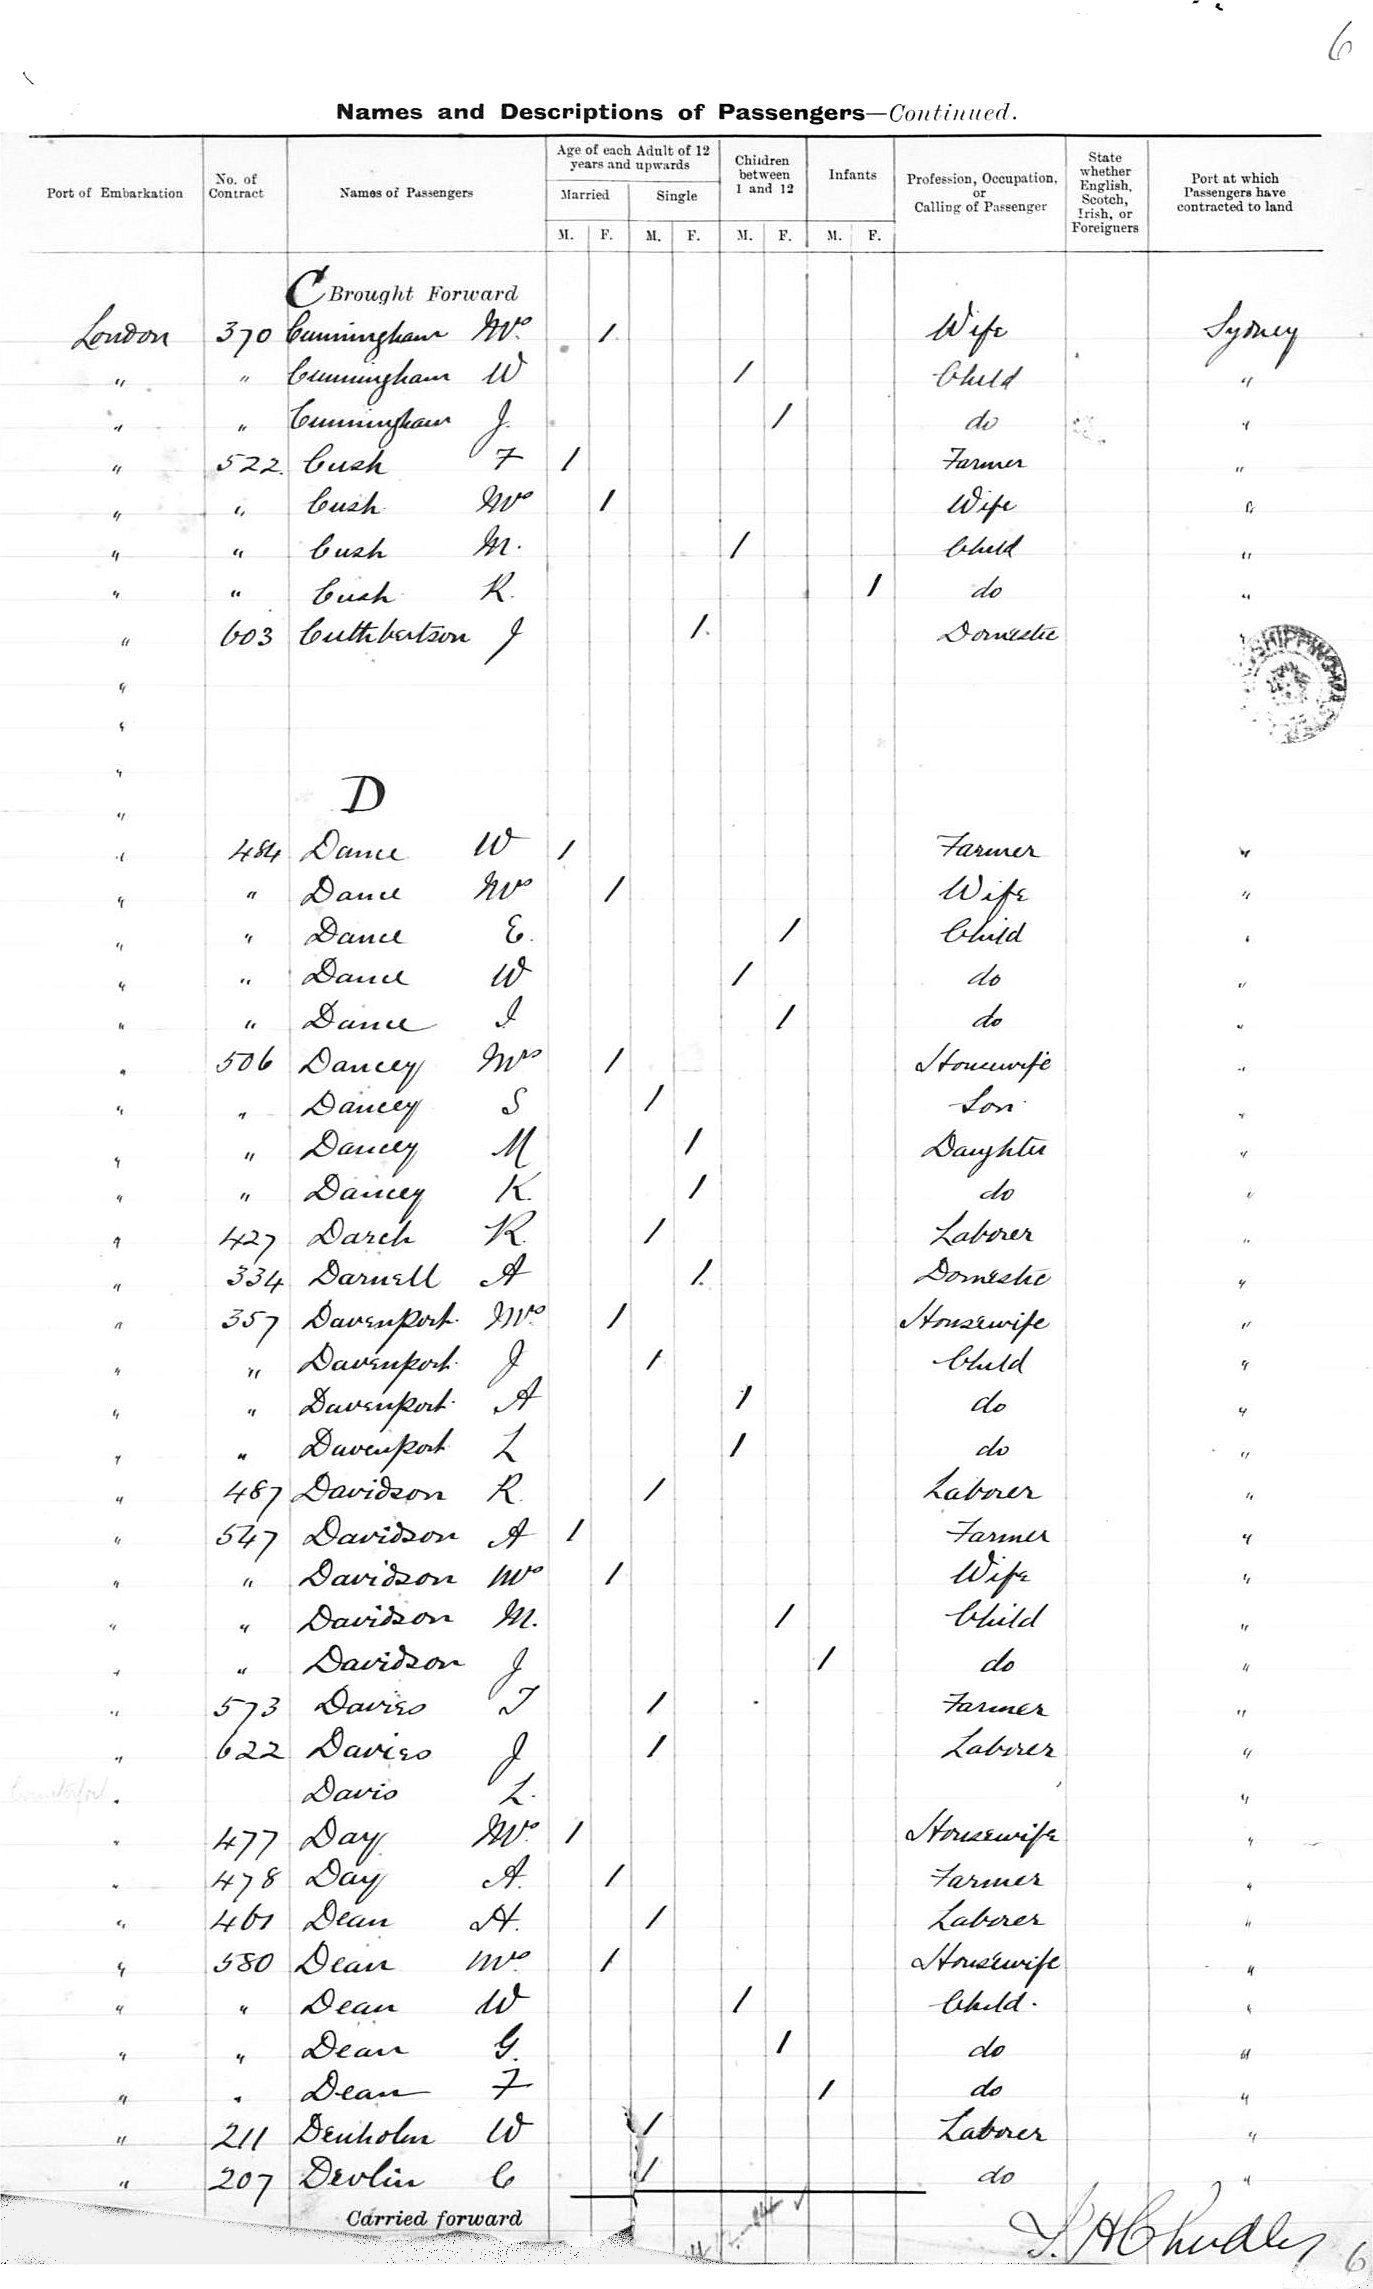 6
Names and Descriptions of Passengers—Continued.
Port of Embarkation No. of Contract Names of Passengers Age of each Adult of 12 years and upwards Married M. F. Single M. F. Children between 1 and 12 M. F. Infants M. F. Profession, Occupation, or Calling of Passenger State whether English, Scotch, Irish, or Foreigners Port at which Passengers have contracted to land
C Brought Forward
London 370 Cunningham Mrs. 1 Wife Sydney
" " Cunningham W 1 Child "
" " Cunningham J. 1 do "
" 522 Cush F 1 Farmer "
" " Cush Mrs 1 Wife "
" " Cush M. 1 Child "
" " Cush R. 1 do "
" 603 Cuthbertson J 1 Domestic "
SHIPPING
"
"
"
D
"
" 484 Dance W 1 Farmer "
" " Dance Mrs 1 Wife "
" " Dance E. 1 Child "
" " Dance W 1 do "
" " Dance I 1 do "
" 506 Dancey Mrs 1 Housewife "
" " Dancey S 1 Son "
" " Dancey M 1 Daughter "
" " Dancey K. 1 do "
" 427 Darch R. 1 Laborer "
" 334 Darnell A 1 Domestic "
" 357 Davenport Mrs. 1 Housewife "
" " Davenport J 1 Child "
" " Davenport A 1 do "
" " Davenport L 1 do "
" 487 Davidson R. 1 Laborer "
" 547 Davidson A 1 Farmer "
" " Davidson Mrs 1 Wife "
" " Davidson M. 1 Child "
" " Davidson J 1 do "
" 573 Davies T 1 Farmer "
" 622 Davies J 1 Laborer "
" Davis L. "
" 477 Day Mrs. 1 Housewife "
" 478 Day A. 1 Farmer "
" 461 Dean H. 1 Laborer "
" 580 Dean Mrs. 1 Housewife "
" " Dean W 1 Child. "
" " Dean G. 1 do "
" " Dean F 1 do "
" 211 Denholm W 1 Laborer "
" 207 Devlin C 1 do "
Carried forward
6